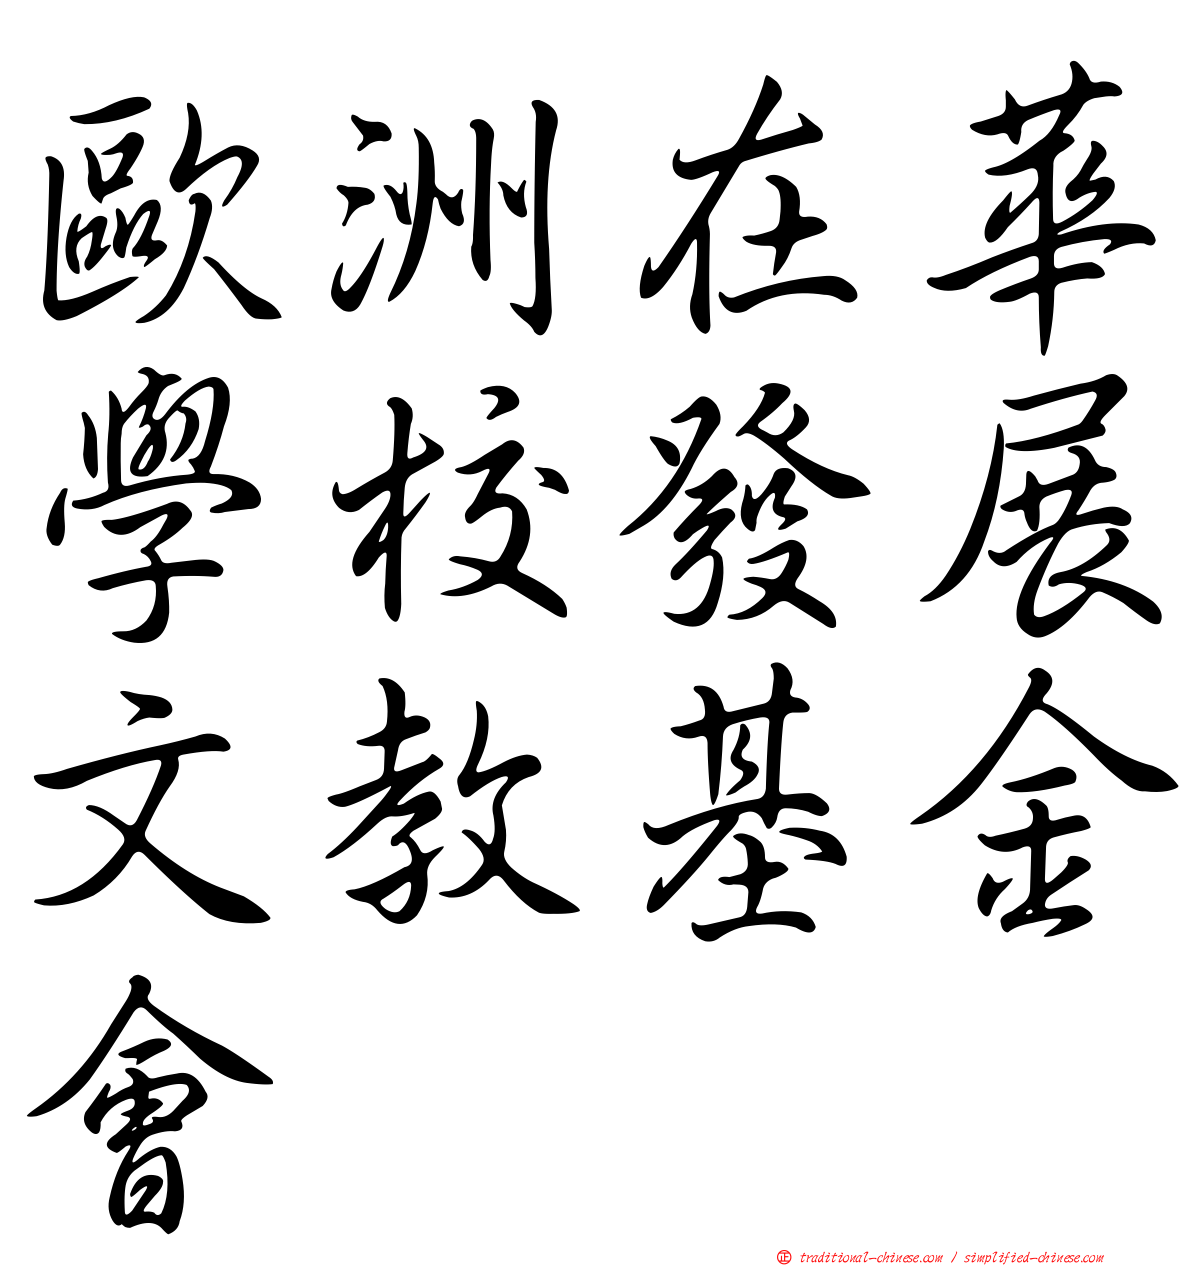 歐洲在華
學校發展
文教基金
會
正 traditional-chinese.com / simplified-chinese.com